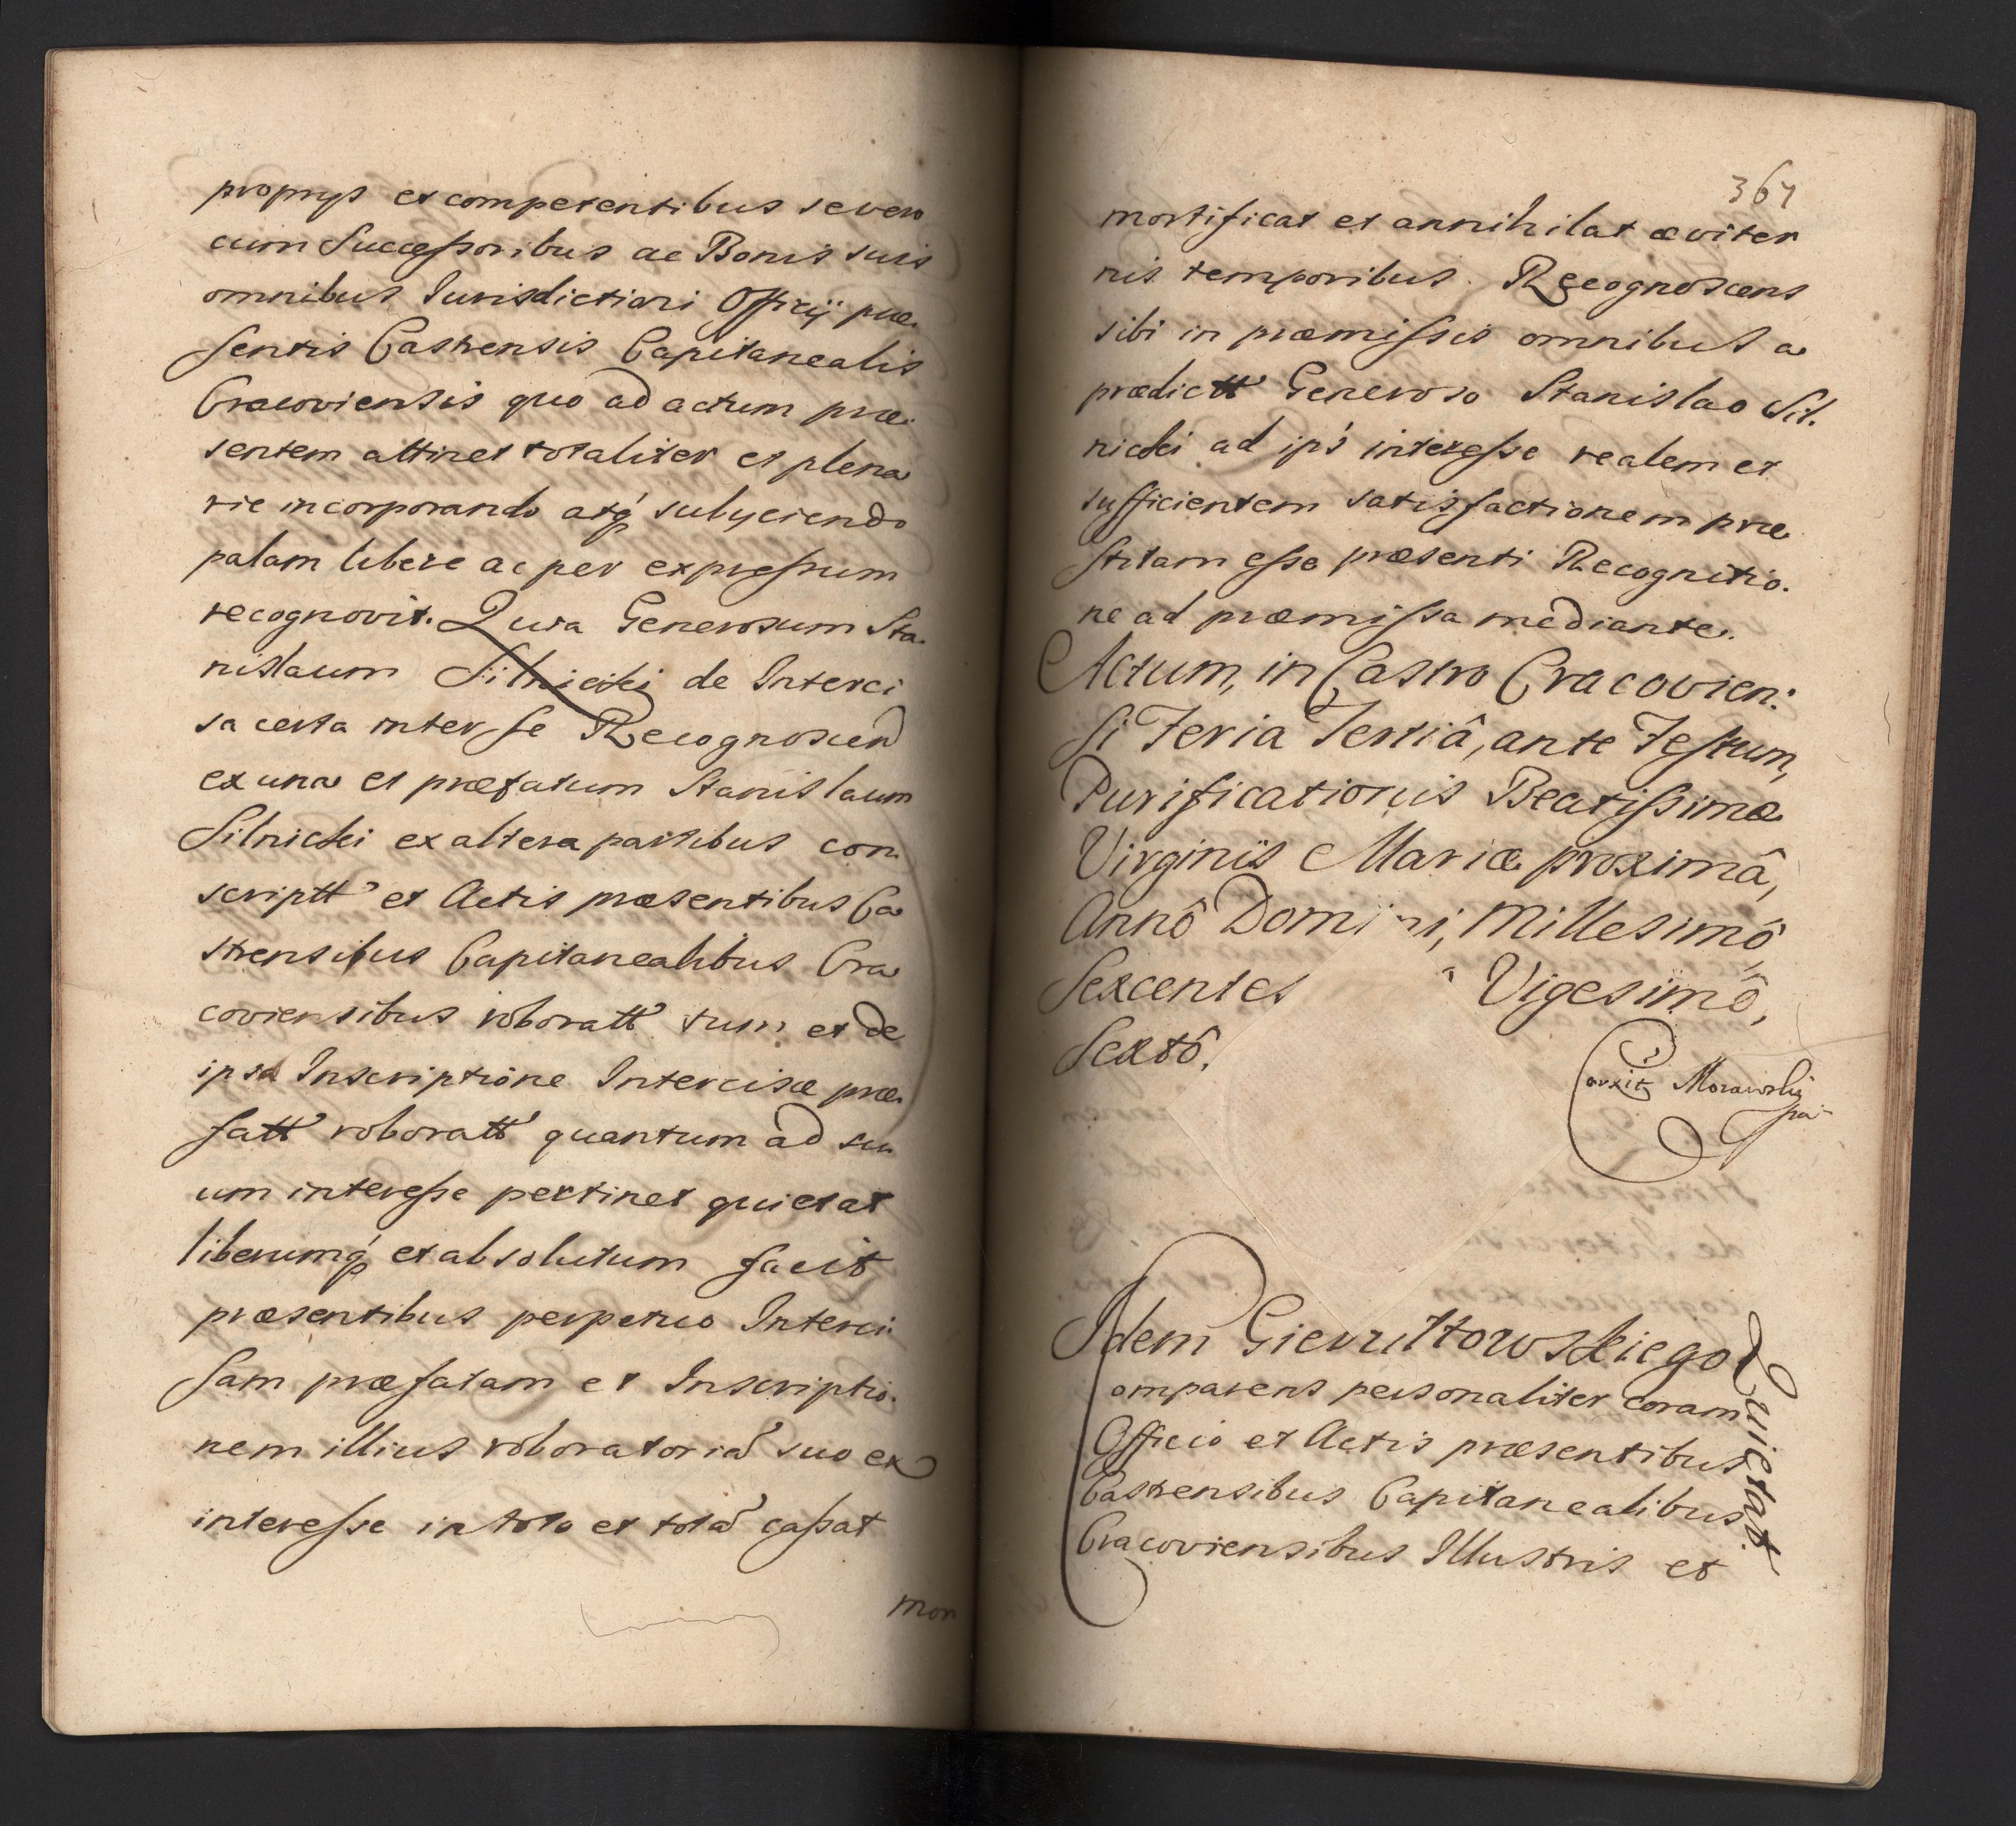 proprys et competentibus se vero
cum Successoribus ac Bonis suis
omnibus Iurisdictioni Officÿ præ
sentis Castrensis Capitanealis
Cracoviensis quo ad actum præ:
sentem attinet totaliter et plena
rie incorporando atq́ subyciendo
palam libere ac per expressum
recognovit. Quia Generosum Sta.
nislaum Silnicki de Interci
sa certa inter se Recognoscen
ex una et præfatum Stanislaum
Silnicki ex altera partibus con
scriptt et Actis præsentibus Ca
strensibus Capitanealibus Cra
coviensibus roboratt tum et de
ipsa Inscriptione Intercisæ præ.
fatt roboratt quantum ad su
um interesse pertinet quietat
liberumq́ et absolutum facit
præsentibus perpetuo Interci:
sam præfatam et Inscriptio.
nem illius roboratoria suo ex
interesse in toto et tota cassat
mor
367
mortificat et annihilat æviter
nis temporibus. Recognoscens
sibi in præmissis omnibus a
prædictt Generoso Stanislao Sil.
nicki ad ips interesse realem et
sufficientem satisfactionem præ
stitam esse præsenti Recognitio.
ne ad præmissa mediante.
Actum, in Castro Cracovien:
si Feria Tertiâ, ante Festum,
Purificationis Beatissimæ
Virginis Mariæ proximâ,
Annô Domini, Millesimô
Sexcentes Vigesimô,
Sextô.
Morawski
Idem Gierultowskiego
Quietat.
Comparens personaliter coram
Officio et Actis præsentibus
Castrensibus Capitanealibus
Cracoviensibus Illustris et